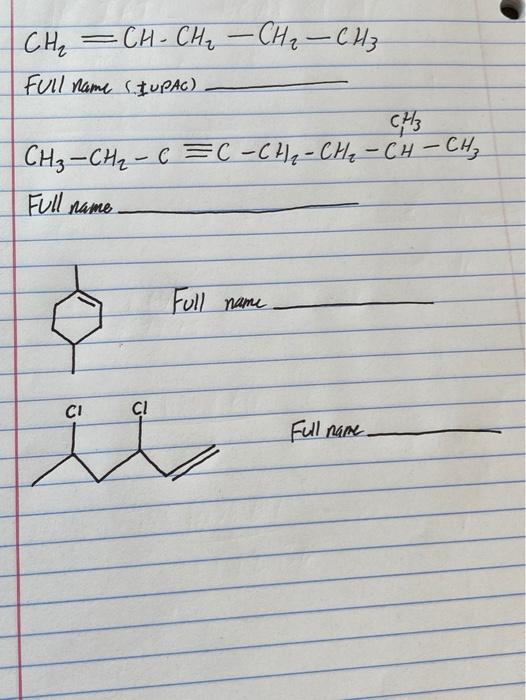 CH₂ = CH - CH₂ — CH₂ — CH₃
Full name (IUPAC) ________
CH₃
CH₃ — CH₂ — C ≡ C — CH₂ — CH₂ — CH — CH₃
Full name ________
Full name ________
Cl Cl
Full name ________